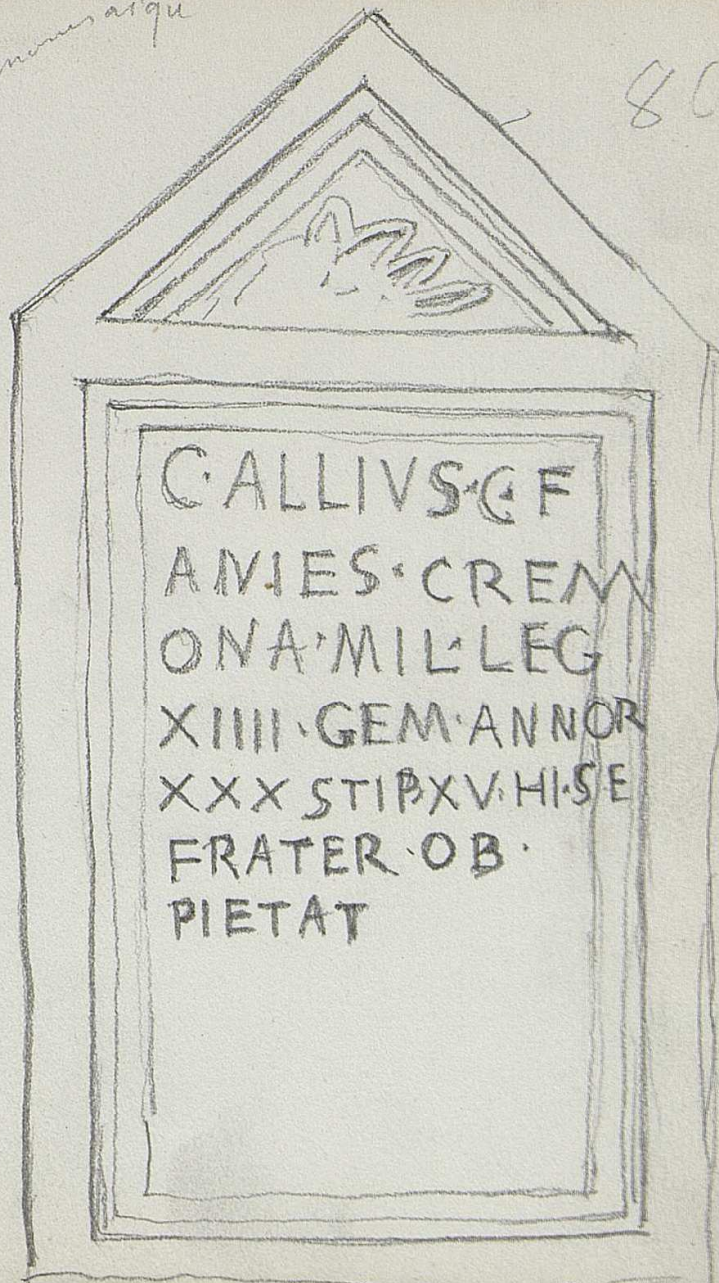 C·ALLIVS·C·F
ANIES·CREM
ONA·MIL·LEG
XIIII·GEM·ANNOR
XXX STIP XV·HI·S E
FRATER·OB·
PIETAT